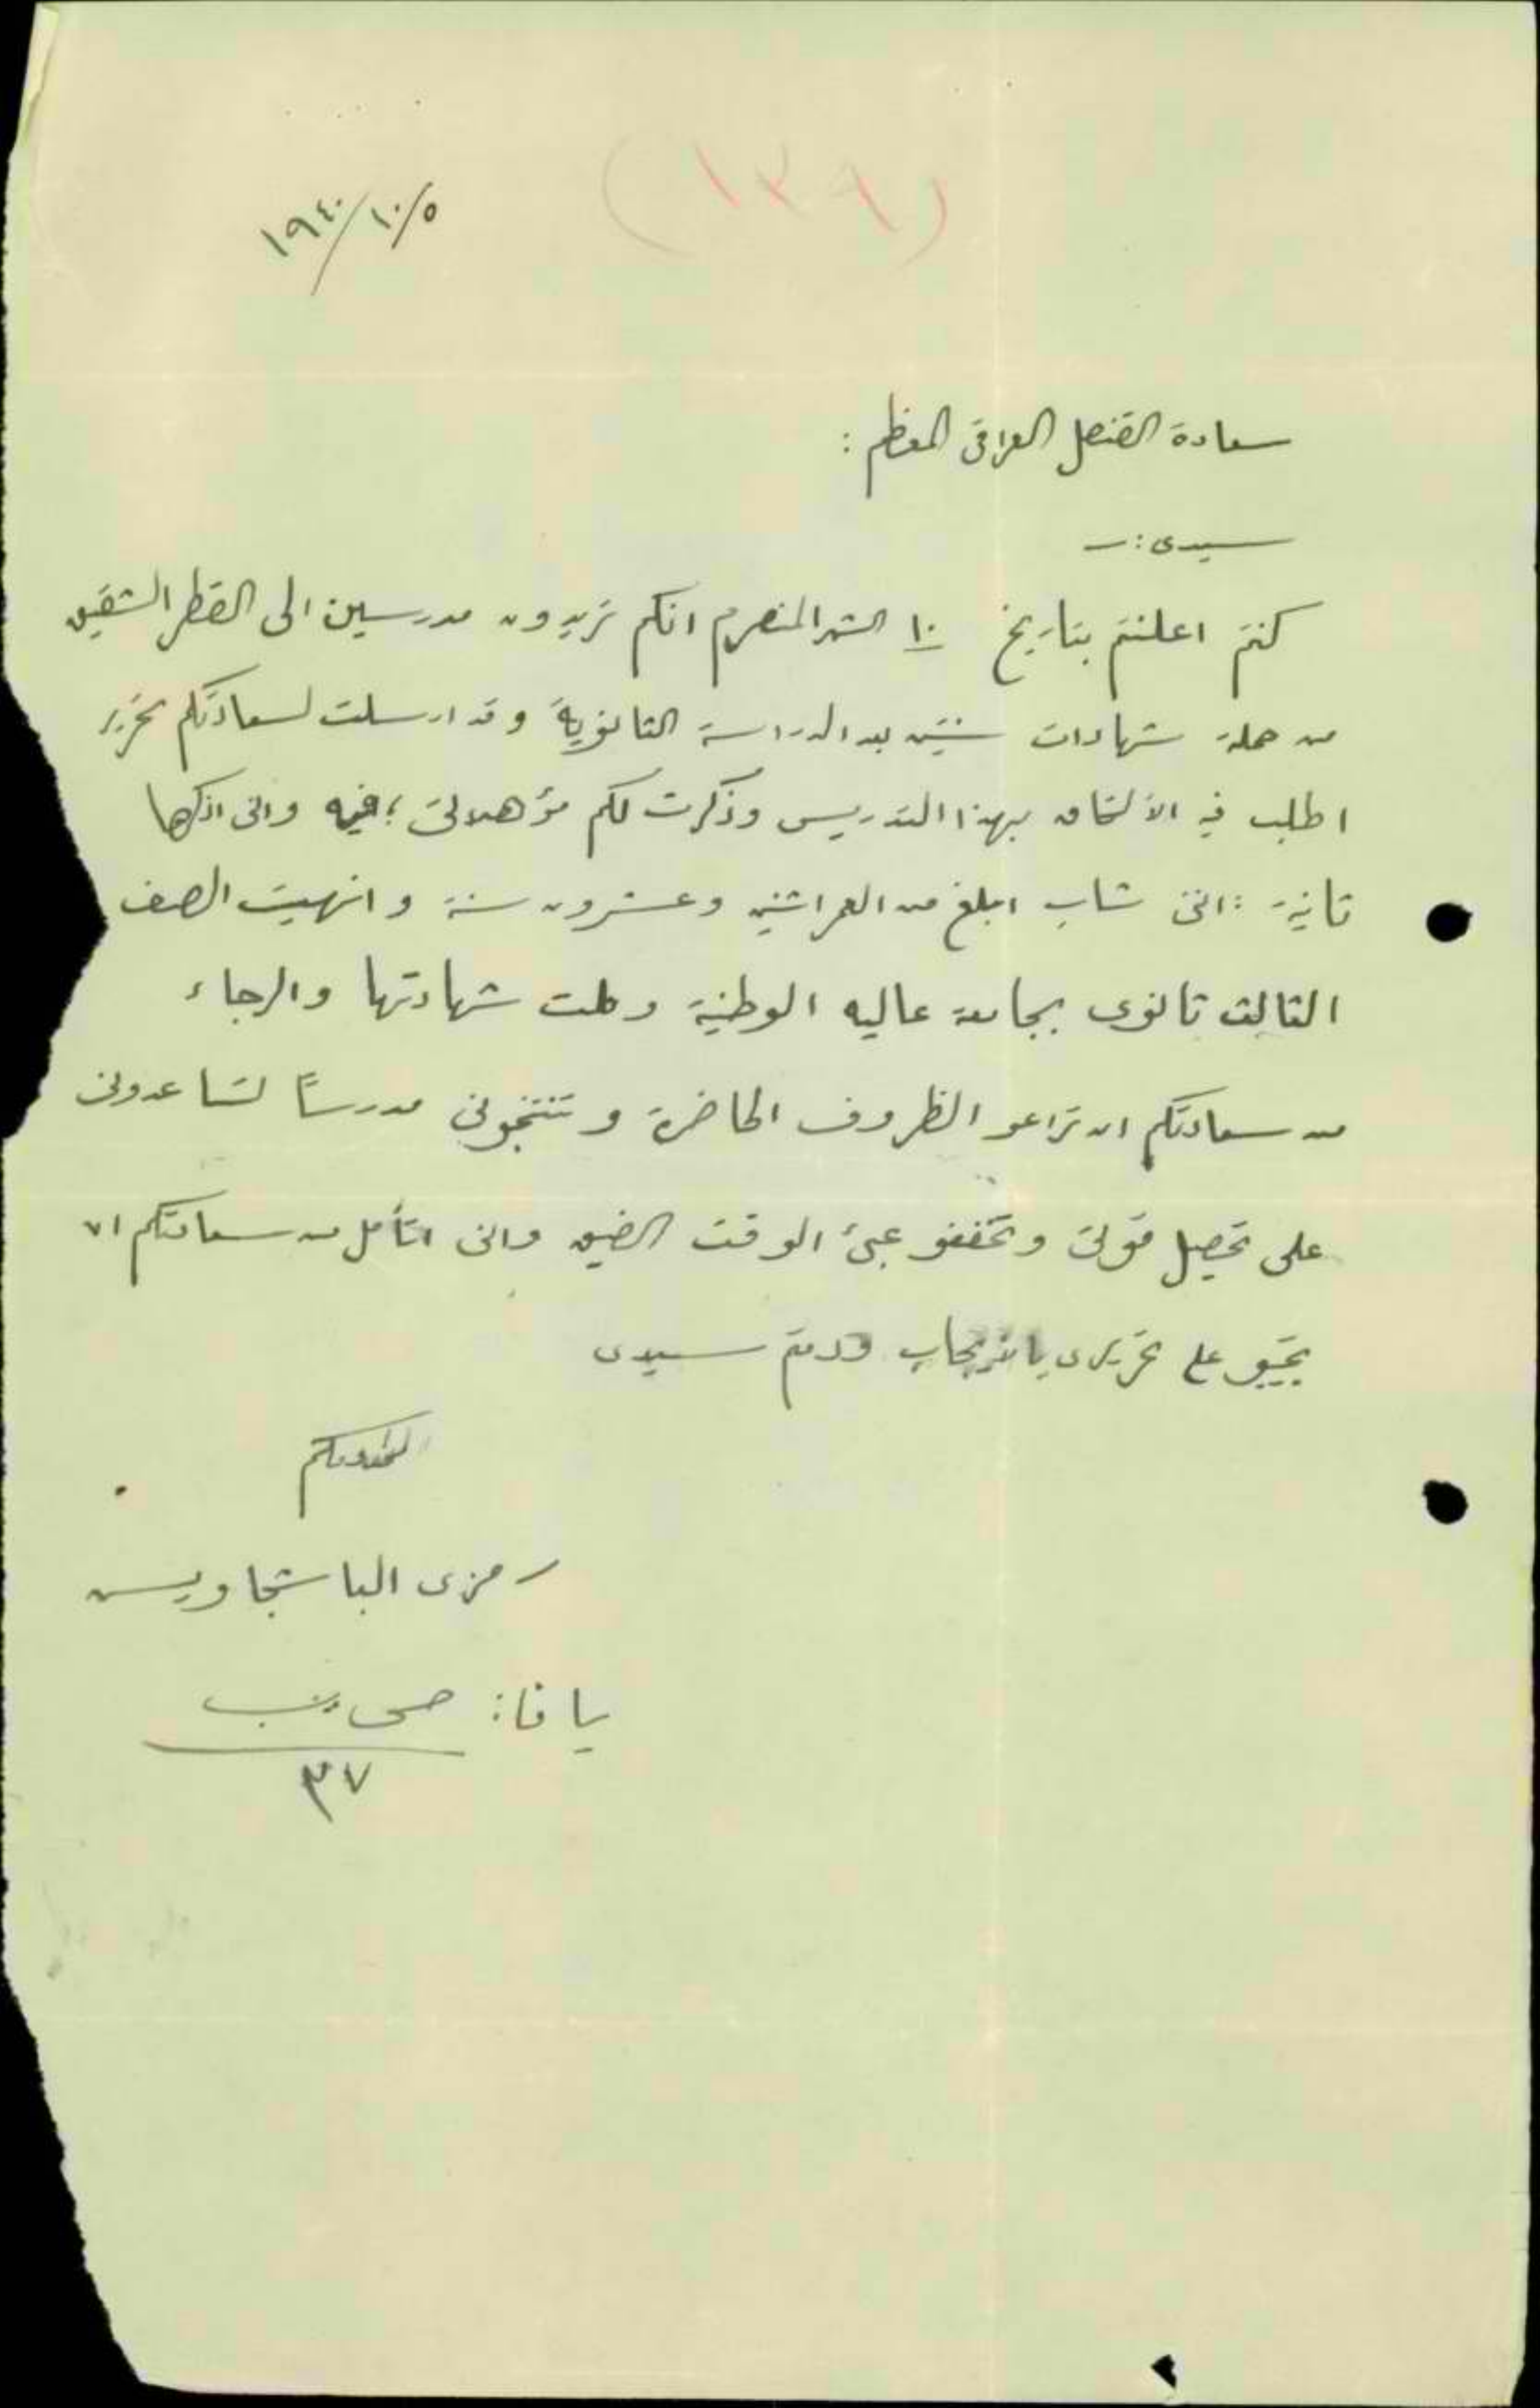 (١٣٩)
١٩٤٠/١٠/٥
سعادة القنصل العراقي المعظم :
سيدى :ـ
كنتم اعلنتم بتاريخ ١٠ الشهر المنصرم انكم تريدون مدرسين الى القطر الشقيق
من حملة شهادات سنتين بعد الدراسة الثانوية وقد ارسلت لسعادتكم تحرير
اطلب فيه الألتحاق بهذا التدريس وذكرت لكم مؤهلاتى فيه وانى اذكرها
ثانية : اننى شاب ابلغ من العمر اثنين وعشرون سنة وانهيت الصف
الثالث ثانوى بجامعة عاليه الوطنية وحملت شهادتها والرجاء
من سعادتكم ان تراعو الظروف الحاضرة وتنتخبونى مدرساً لتساعدونى
على تحصيل قوتى وتخففو عبئ الوقت الضيق وانى اتأمل من سعادتكم ان
تجيبو على تحريرى بالايجاب ودمتم سيدى
رمزى الباشجاويش
يافا : ص.ب
٣٧